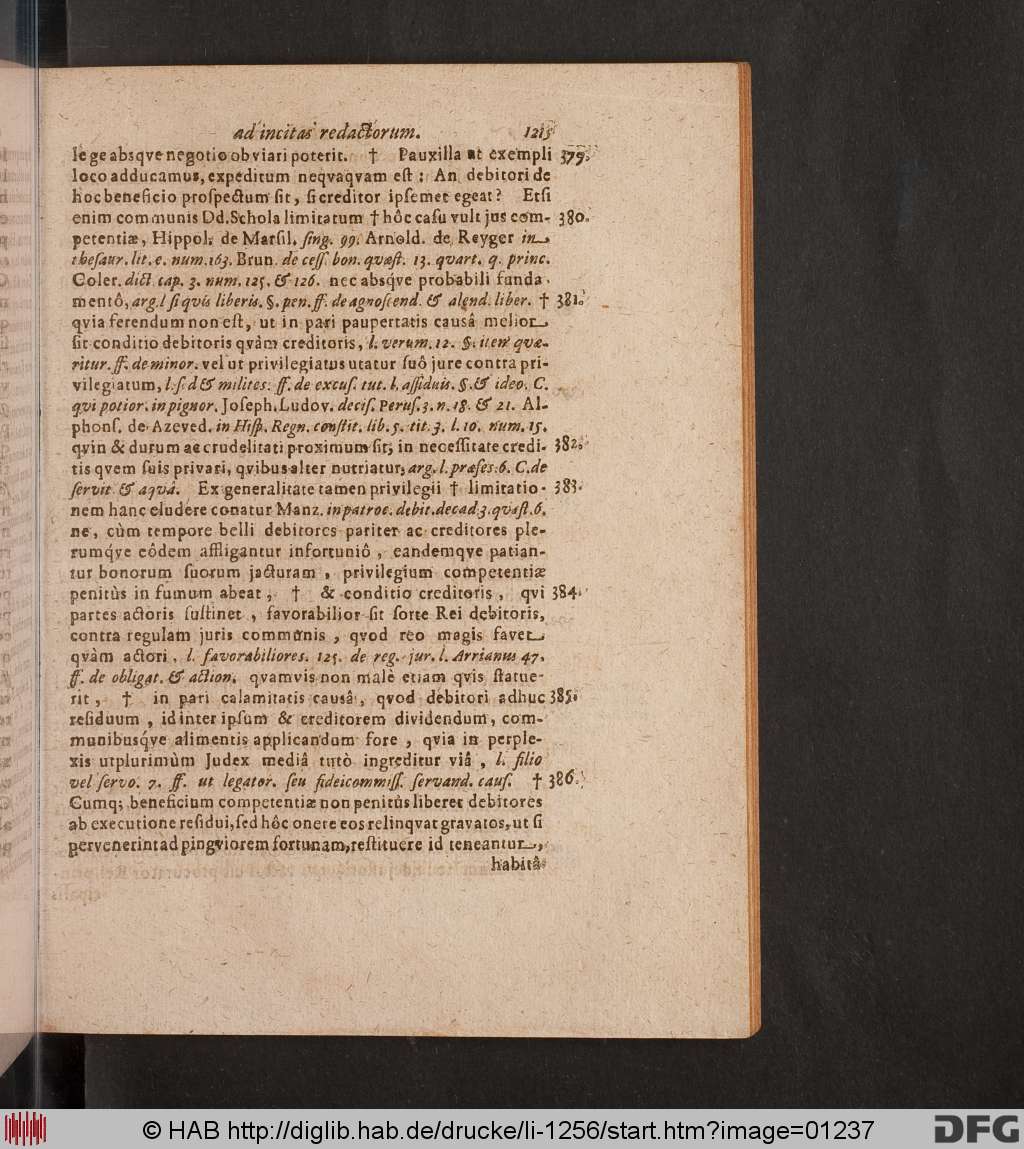 ad incitas redactorum. 1215
lege absqve negotio obviari poterit. † Pauxilla ut exempli 379.
loco adducamus, expeditum neqvaqvam est: An debitori de
hoc beneficio prospectum sit, si creditor ipsemet egeat? Etsi
enim communis Dd. Schola limitatum † hôc casu vult jus com- 380.
petentiæ, Hippol. de Marsil. sing. 99. Arnold. de Reyger in
thesaur. lit. e. num. 163. Brun. de cess. bon. quæst. 13. quart. q. princ.
Coler. dict. cap. 3. num. 125. & 126. nec absq́ve probabili funda-
mentô, arg. l si qvis liberis. §. pen. ff. de agnoscend. & alend. liber. † 381.
qvia ferendum non est, ut in pari paupertatis causâ melior
sit conditio debitoris qvàm creditoris, l. verum. 12. §. item quæ-
ritur. ff. de minor. vel ut privilegiatus utatur suô jure contra pri-
vilegiatum, l. s. d & milites. ff. de excus. tut. l. assiduis. §. & ideo. C.
qvi potior. in pignor. Joseph. Ludov. decis. Perus. 3. n. 18. & 21. Al-
phons. de Azeved. in Hisp. Regn. constit. lib. 5. tit. 3. l. 10. num. 15.
qvin & durum ac crudelitati proximum sit, in necessitate credi- 382.
tis qvem suis privari, qvibus alter nutriatur, arg. l. præses. 6. C. de
servit. & aqvâ. Ex generalitate tamen privilegii † limitatio- 383.
nem hanc eludere conatur Manz. in patroc. debit. decad. 3. quæst. 6.
ne, cùm tempore belli debitores pariter ac creditores ple-
rumq́ve eôdem affligantur infortuniô, eandemqve patian-
tur bonorum suorum jacturam, privilegium competentiæ
penitùs in fumum abeat, † & conditio creditoris, qvi 384.
partes actoris sustinet, favorabilior sit sorte Rei debitoris,
contra regulam juris communis, qvod reo magis favet
qvàm actori, l. favorabiliores. 125. de reg. jur. l. Arrianus 47.
ff. de obligat. & action. qvamvis non malè etiam qvis statue-
rit, † in pari calamitatis causâ, qvod debitori adhuc 385.
residuum, id inter ipsum & creditorem dividendum, com-
munibusq́ve alimentis applicandum fore, qvia in perple-
xis utplurimùm Judex mediâ tutò ingreditur viâ, l. filio
vel servo. 7. ff. ut legator. seu fideicommiss. servand. caus. † 386.
Cumq; beneficium competentiæ non penitùs liberet debitores
ab executione residui, sed hôc onere eos relinqvat gravatos, ut si
pervenerint ad pingviorem fortunam, restituere id teneantur,
habitâ
© HAB http://diglib.hab.de/drucke/li-1256/start.htm?image=01237
DFG